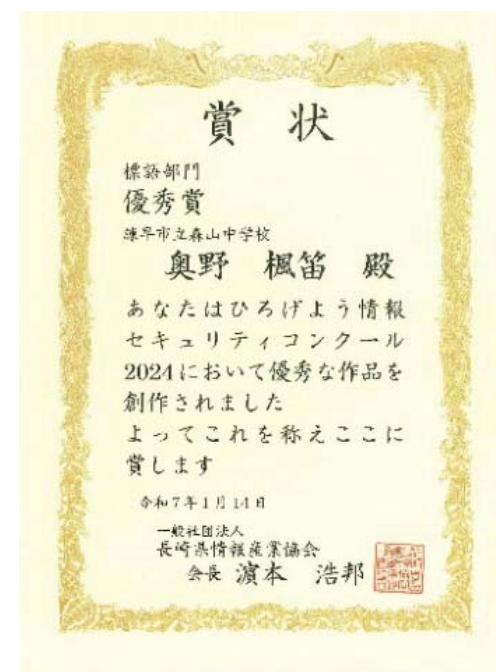 賞状
標語部門
優秀賞
諫早市立森山中学校
奥野 楓笛 殿
あなたはひろげよう情報
セキュリティコンクール
2024において優秀な作品を
創作されました
よってこれを称えここに
賞します
令和7年1月14日
一般社団法人
長崎県情報産業協会
会長 濵本 浩邦